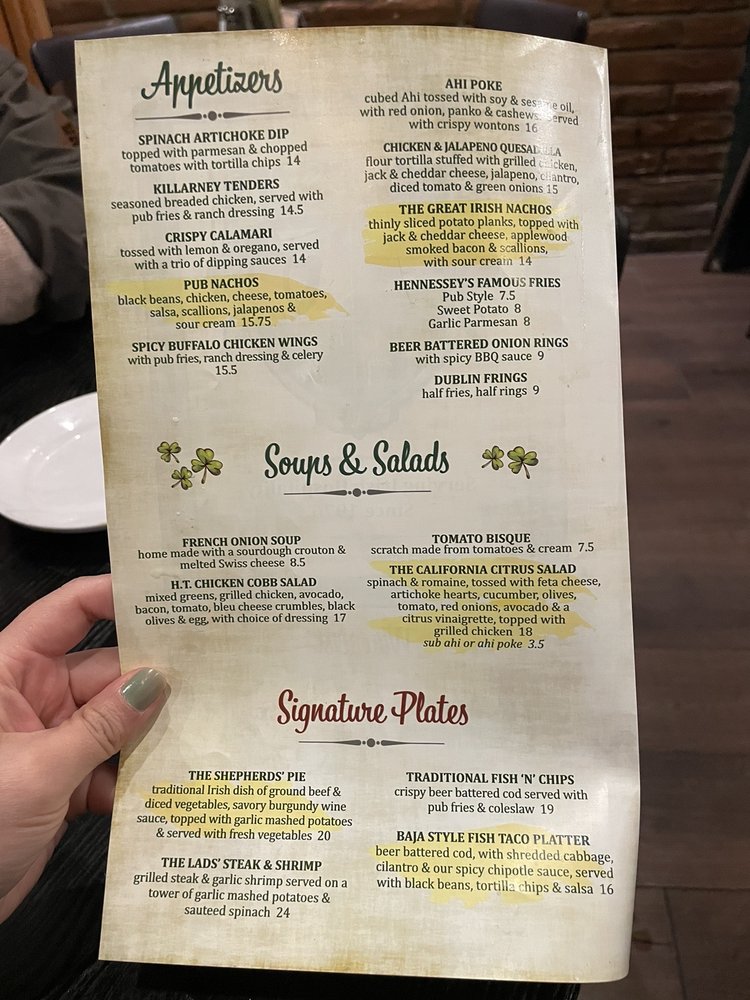 Appetizers
SPINACH ARTICHOKE DIP
topped with parmesan & chopped
tomatoes with tortilla chips 14
KILLARNEY TENDERS
seasoned breaded chicken, served with
pub fries & ranch dressing 14.5
CRISPY CALAMARI
tossed with lemon & oregano, served
with a trio of dipping sauces 14
PUB NACHOS
black beans, chicken, cheese, tomatoes,
salsa, scallions, jalapenos &
sour cream 15.75
SPICY BUFFALO CHICKEN WINGS
with pub fries, ranch dressing & celery
15.5
AHI POKE
cubed Ahi tossed with soy & sesame oil,
with red onion, panko & cashews. Served
with crispy wontons 16
CHICKEN & JALAPENO QUESADILLA
flour tortilla stuffed with grilled chicken,
jack & cheddar cheese, jalapeno, cilantro,
diced tomato & green onions 15
THE GREAT IRISH NACHOS
thinly sliced potato planks, topped with
jack & cheddar cheese, applewood
smoked bacon & scallions,
with sour cream 14
HENNESSEY'S FAMOUS FRIES
Pub Style 7.5
Sweet Potato 8
Garlic Parmesan 8
BEER BATTERED ONION RINGS
with spicy BBQ sauce 9
DUBLIN FRINGS
half fries, half rings 9
Soups & Salads
FRENCH ONION SOUP
home made with a sourdough crouton &
melted Swiss cheese 8.5
H.T. CHICKEN COBB SALAD
mixed greens, grilled chicken, avocado,
bacon, tomato, bleu cheese crumbles, black
olives & egg, with choice of dressing 17
TOMATO BISQUE
scratch made from tomatoes & cream 7.5
THE CALIFORNIA CITRUS SALAD
spinach & romaine, tossed with feta cheese,
artichoke hearts, cucumber, olives,
tomato, red onions, avocado & a
citrus vinaigrette, topped with
grilled chicken 18
sub ahi or ahi poke 3.5
Signature Plates
THE SHEPHERDS' PIE
traditional Irish dish of ground beef &
diced vegetables, savory burgundy wine
sauce, topped with garlic mashed potatoes
& served with fresh vegetables 20
THE LADS' STEAK & SHRIMP
grilled steak & garlic shrimp served on a
tower of garlic mashed potatoes &
sauteed spinach 24
TRADITIONAL FISH 'N' CHIPS
crispy beer battered cod served with
pub fries & coleslaw 19
BAJA STYLE FISH TACO PLATTER
beer battered cod, with shredded cabbage,
cilantro & our spicy chipotle sauce, served
with black beans, tortilla chips & salsa 16